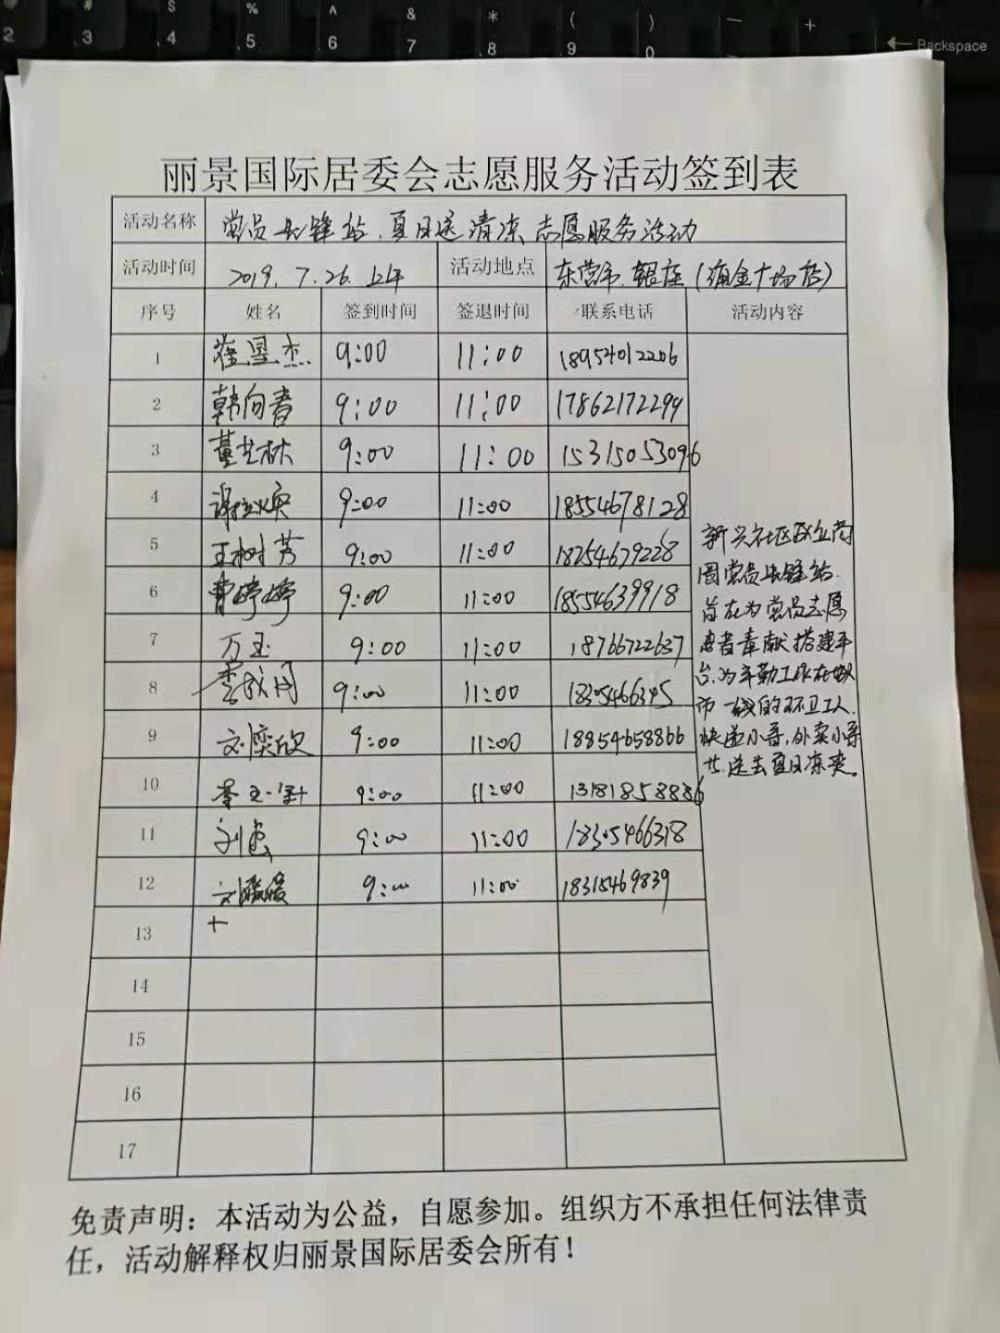 # $ % ^ & * ( ) — +
2 3 4 5 6 7 8 9 0 Backspace
丽景国际居委会志愿服务活动签到表
活动名称 党员先锋站.夏日送清凉志愿服务活动
活动时间 2019.7.26.上午 活动地点 东营市.银座(
序号 姓名 签到时间 签退时间 联系电话 活动内容
1 杰 9:00 11:00 18954012206
2 韩向春 9:00 11:00 17862172299
3 董 林 9:00 11:00 15315053096
4 9:00 11:00 18554678128
5 王树芳 9:00 11:00 18254679228
6 曹婷婷 9:00 11:00 18554639918
7 万玉 9:00 11:00 18766722637
8 9:00 11:00 18305466345
9 刘奕欣 9:00 11:00 18854658866
10 李玉 9:00 11:00 13181858886
11 刘 9:00 11:00 18305466318
12 刘媛媛 9:00 11:00 18315469839
13
14
15
16
17
新兴社区
党员先锋站.
旨在为党员志愿
者奉献搭建平
台,为辛勤工作在城
市一线的环卫工人.
快递小哥,外卖小哥
送去夏日凉爽。
免责声明：本活动为公益，自愿参加。组织方不承担任何法律责
任，活动解释权归丽景国际居委会所有！